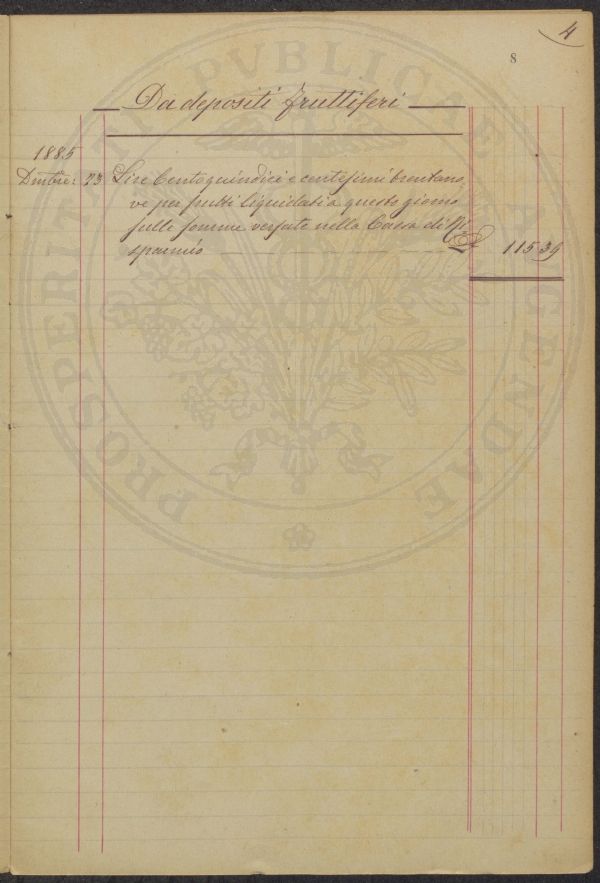 4
8
Da depositi fruttiferi
1885
Dmbre: 23 Lire Centoquindici e centesimi trentano,
ve per frutti liquidati a questo giorno
sulle somme versate nella Cassa di Ri
sparmio 115 39
PROSPERITATI PVBLICAE AGENDAE